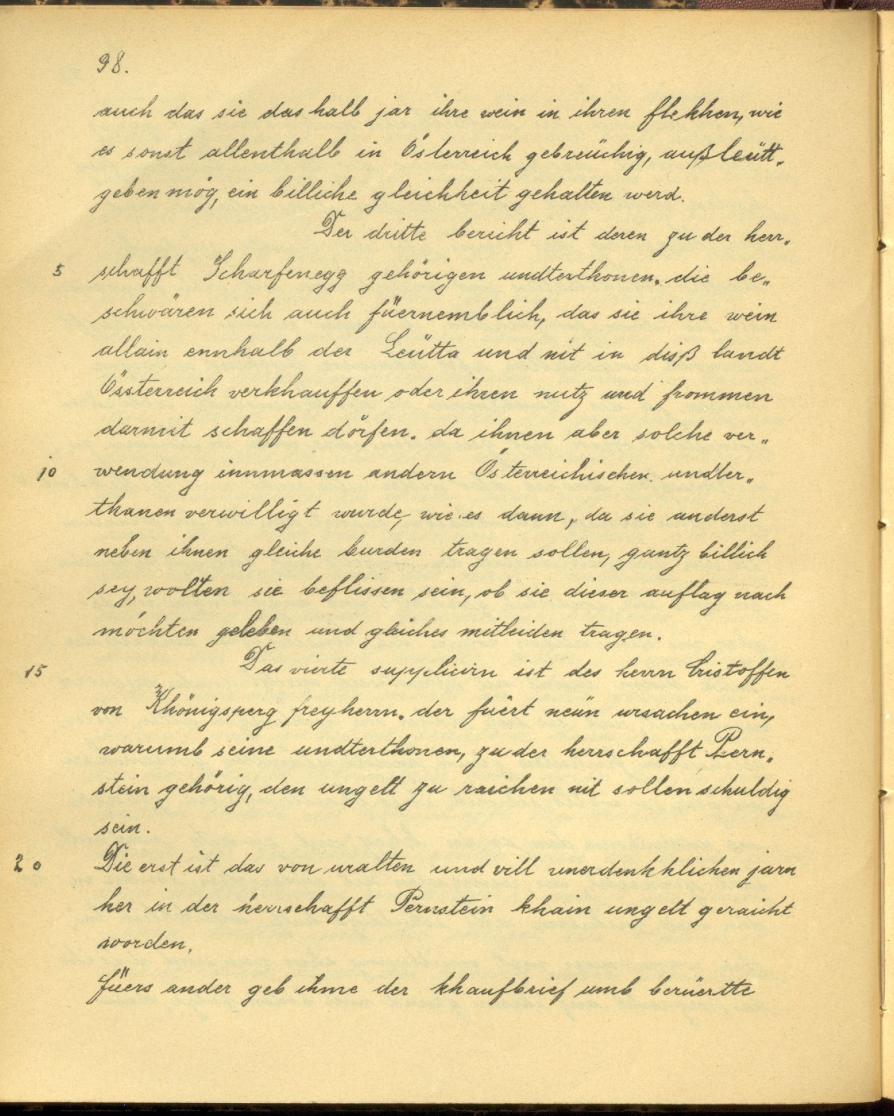 98.
auch das sie das halb jar ihre wein in ihren flekhen, wie
es sonst allenthalb in Österreich gebreüchig, außleütt„
geben mög, ein billiche gleichheit gehalten werd.
Der dritte bericht ist deren zu der herr„
5 schafft Scharfenegg gehörigen undterthonen. die be„
schwären sich auch füernemblich, das sie ihre wein
allain ennhalb der Leütta und nit in disß landt
Össterreich verkhauffen oder ihren nutz und frommen
darmit schaffen dörfen. da ihnen aber solche ver„
10 wendung innmassen andern Österreichischen undter„
thanen verwilligt wurde, wie es dann, da sie anderst
neben ihnen gleiche burden tragen sollen, gantz billich
sey, wolten sie beflissen sein, ob sie dieser auflag nach
möchten geleben und gleiches mitleiden tragen.
15 Das vierte supplicirn ist des herrn Cristoffen
von Khönigsperg freyherrn. der füert neün ursachen ein,
warumb seine undterthonen, zu der herrschafft Pern„
stein gehörig, den ungelt zu raichen nit sollen schuldig
sein.
20 Die erst ist das von uralten und vill unerdenkhlichen jarn
her in der herrschafft Pernstein khain ungelt geraicht
worden.
Füers ander geb ihme der khaufbrief umb berüertte